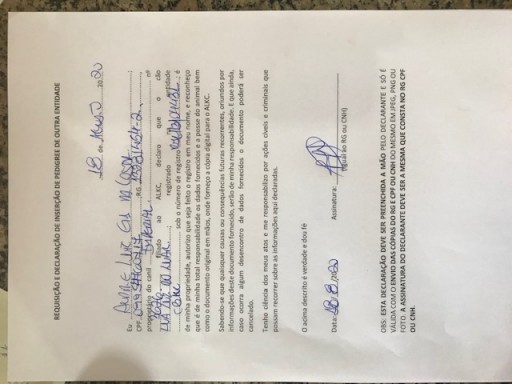 REQUISIÇÃO E DECLARAÇÃO DE INSERÇÃO DE PEDIGREE DE OUTRA ENTIDADE
18 de Agosto 2020
Eu ANDRE LUIZ
CPF RG nº
proprietário do canil
filiado ao ALKC, declaro que o cão
registrado na entidade
CBKC sob o número de registro é
de minha propriedade, autorizo que seja feito o registro em meu nome, e reconheço
que é de minha total responsabilidade os dados fornecidos e a posse do animal bem
como o documento original em mãos, onde forneço a cópia digital para o ALKC.
Sabendo-se que quaisquer causas ou consequências futuras recorrentes, oriundos por
informações deste documento fornecido, serão de minha responsabilidade. E que ainda,
caso ocorra algum desencontro de dados fornecidos o documento poderá ser
cancelado.
Tenho ciência dos meus atos e me responsabilizo por ações cíveis e criminais que
possam recorrer sobre as informações aqui declaradas.
O acima descrito é verdade e dou fé
Data: 18/8/2020 Assinatura:
(igual ao RG ou CNH)
OBS: ESTA DECLARAÇÃO DEVE SER PREENCHIDA A MÃO PELO DECLARANTE E SÓ É
VÁLIDA COM O ENVIO DAS CÓPIAS DO RG E CPF OU CNH DO MESMO EM JPEG, PNG OU
FOTO. A ASSINATURA DO DECLARANTE DEVE SER A MESMA QUE CONSTA NO RG CPF
OU CNH.